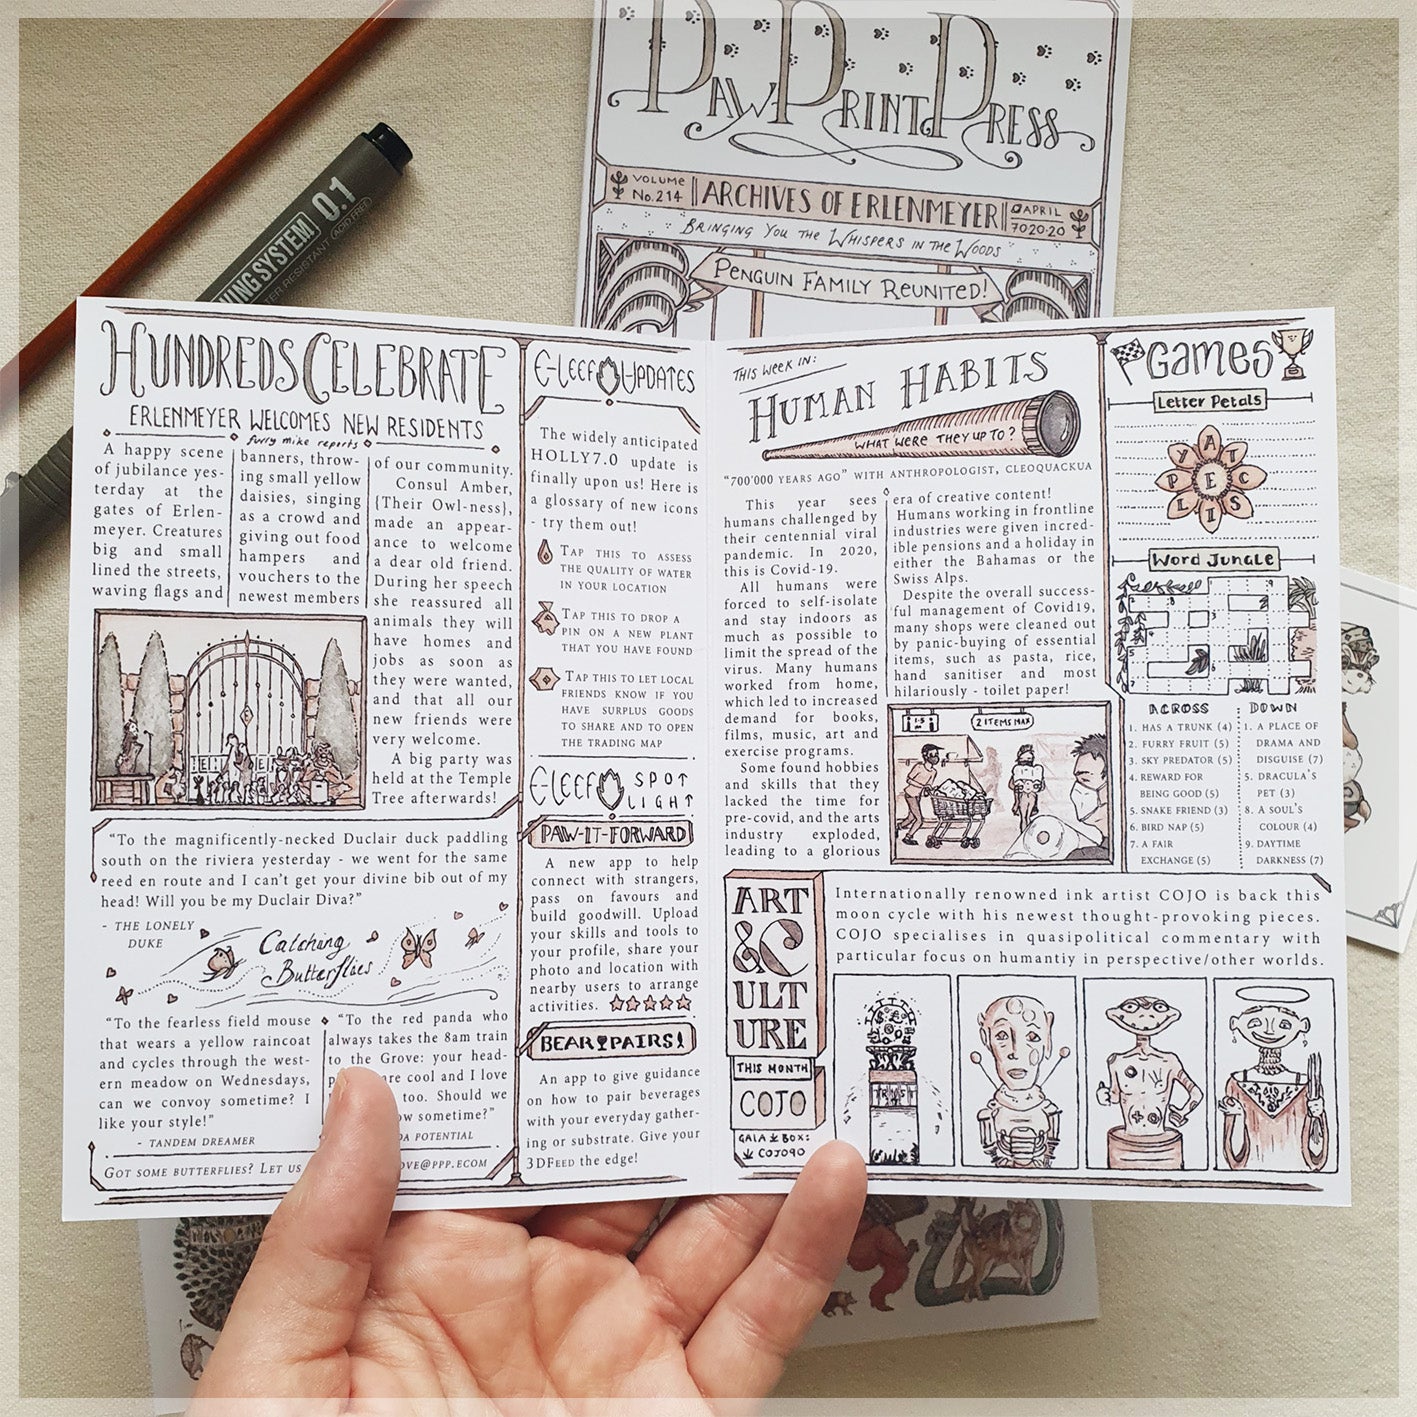 NING SYSTEM 0.1
PAW PRINT PRESS
VOLUME
No. 214
ARCHIVES OF ERLENMEYER
APRIL
7020·20
BRINGING YOU THE WHISPERS IN THE WOODS
PENGUIN FAMILY REUNITED!
HUNDREDS CELEBRATE
ERLENMEYER WELCOMES NEW RESIDENTS
furry mike reports
A happy scene
of jubilance yes-
terday at the
gates of Erlen-
meyer. Creatures
big and small
lined the streets,
waving flags and
banners, throw-
ing small yellow
daisies, singing
as a crowd and
giving out food
hampers and
vouchers to the
newest members
of our community.
Consul Amber,
{Their Owl-ness},
made an appear-
ance to welcome
a dear old friend.
During her speech
she reassured all
animals they will
have homes and
jobs as soon as
they were wanted,
and that all our
new friends were
very welcome.
A big party was
held at the Temple
Tree afterwards!
"To the magnificently-necked Duclair duck paddling
south on the riviera yesterday - we went for the same
reed en route and I can't get your divine bib out of my
head! Will you be my Duclair Diva?"
- THE LONELY
DUKE
Catching
Butterflies
"To the fearless field mouse
that wears a yellow raincoat
and cycles through the west-
ern meadow on Wednesdays,
can we convoy sometime? I
like your style!"
- TANDEM DREAMER
"To the red panda who
always takes the 8am train
to the Grove: your head-
are cool and I love
too. Should we
sometime?"
POTENTIAL
GOT SOME BUTTERFLIES? LET US
OVE@PPP.ECOM
E-LEEF UPDATES
The widely anticipated
HOLLY7.0 update is
finally upon us! Here is
a glossary of new icons
- try them out!
TAP THIS TO ASSESS
THE QUALITY OF WATER
IN YOUR LOCATION
TAP THIS TO DROP A
PIN ON A NEW PLANT
THAT YOU HAVE FOUND
TAP THIS TO LET LOCAL
FRIENDS KNOW IF YOU
HAVE SURPLUS GOODS
TO SHARE AND TO OPEN
THE TRADING MAP
E-LEEF SPOT
LIGHT
PAW-IT-FORWARD
A new app to help
connect with strangers,
pass on favours and
build goodwill. Upload
your skills and tools to
your profile, share your
photo and location with
nearby users to arrange
activities.
BEAR PAIRS!
An app to give guidance
on how to pair beverages
with your everyday gather-
ing or substrate. Give your
3DFEED the edge!
THIS WEEK IN:
HUMAN HABITS
WHAT WERE THEY UP TO?
"700'000 YEARS AGO" WITH ANTHROPOLOGIST, CLEOQUACKUA
This year sees
humans challenged by
their centennial viral
pandemic. In 2020,
this is Covid-19.
All humans were
forced to self-isolate
and stay indoors as
much as possible to
limit the spread of the
virus. Many humans
worked from home,
which led to increased
demand for books,
films, music, art and
exercise programs.
Some found hobbies
and skills that they
lacked the time for
pre-covid, and the arts
industry exploded,
leading to a glorious
era of creative content!
Humans working in frontline
industries were given incred-
ible pensions and a holiday in
either the Bahamas or the
Swiss Alps.
Despite the overall success-
ful management of Covid19,
many shops were cleaned out
by panic-buying of essential
items, such as pasta, rice,
hand sanitiser and most
hilariously - toilet paper!
2 ITEMS MAX
Games
Letter Petals
A
T
C
S
I
L
P
Y
E
Word Jungle
ACROSS
1. HAS A TRUNK (4)
2. FURRY FRUIT (5)
3. SKY PREDATOR (5)
4. REWARD FOR
BEING GOOD (5)
5. SNAKE FRIEND (3)
6. BIRD NAP (5)
7. A FAIR
EXCHANGE (5)
DOWN
1. A PLACE OF
DRAMA AND
DISGUISE (7)
5. DRACULA'S
PET (3)
8. A SOUL'S
COLOUR (4)
9. DAYTIME
DARKNESS (7)
ART
&C
ULT
URE
THIS MONTH
COJO
GAIA BOX:
COJO90
Internationally renowned ink artist COJO is back this
moon cycle with his newest thought-provoking pieces.
COJO specialises in quasipolitical commentary with
particular focus on humantiy in perspective/other worlds.